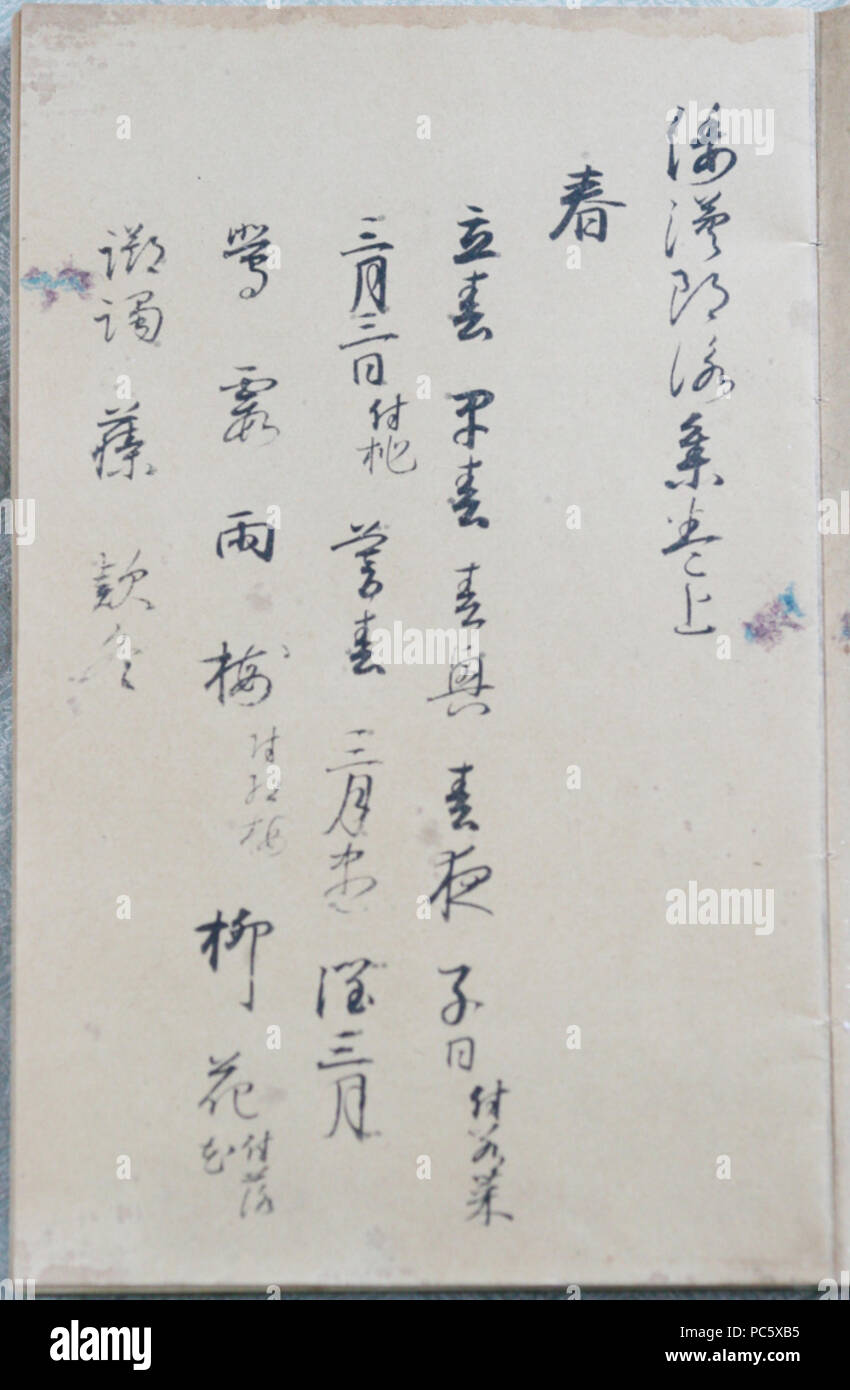 倭漢朗詠集巻上
春
立春 早春 春興 春夜 子日付若菜
三月三日付桃 暮春 三月盡 潤三月
鶯 霞 雨 梅付紅梅 柳 花付落花
躑躅 藤 款冬
alamy
alamy
a alamy
Image ID: PC5XB5
www.alamy.com